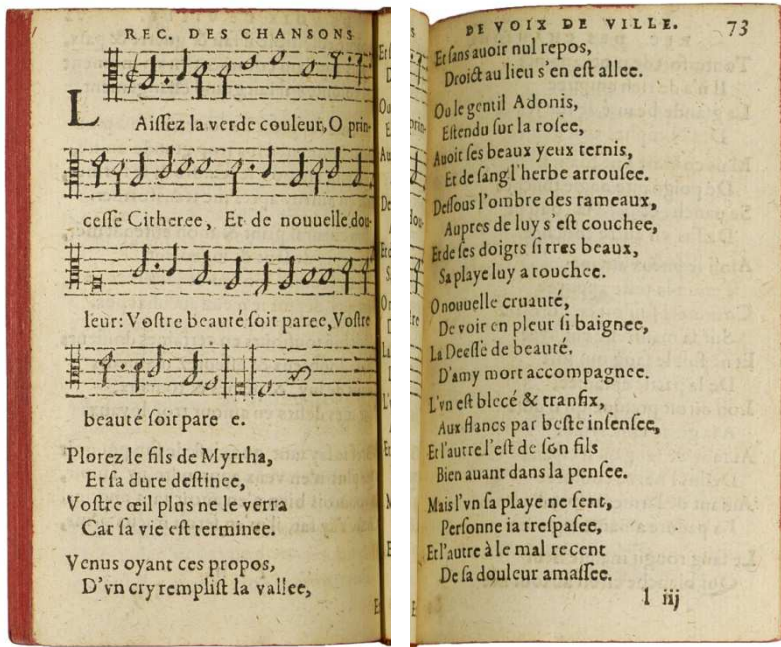 REC. DES CHANSONS
LAissez la verde couleur, O prin-
cesse Citheree, Et de nouuelle dou-
leur: Vostre beauté soit paree, Vostre
beauté soit pare e.
Plorez le fils de Myrrha,
Et sa dure destinee,
Vostre œil plus ne le verra
Car sa vie est terminee.
Venus oyant ces propos,
D'vn cry remplist la vallee,
DE VOIX DE VILLE. 73
Et sans auoir nul repos,
Droict au lieu s'en est allee.
Ou le gentil Adonis,
Estendu sur la rosee,
Auoit ses beaux yeux ternis,
Et de sang l'herbe arrousee.
Dessous l'ombre des rameaux,
Aupres de luy s'est couchee,
Et de ses doigts si tres beaux,
Sa playe luy a touchee.
O nouuelle cruauté,
De voir en pleur si baignee,
La Deesse de beauté,
D'amy mort accompagnee.
L'vn est blecé & transix,
Aux flancs par beste insensee,
Et l'autre l'est de son fils
Bien auant dans la pensee.
Mais l'vn sa playe ne sent,
Personne ia trespasee,
Et l'autre à le mal recent
De sa douleur amassee.
l iij